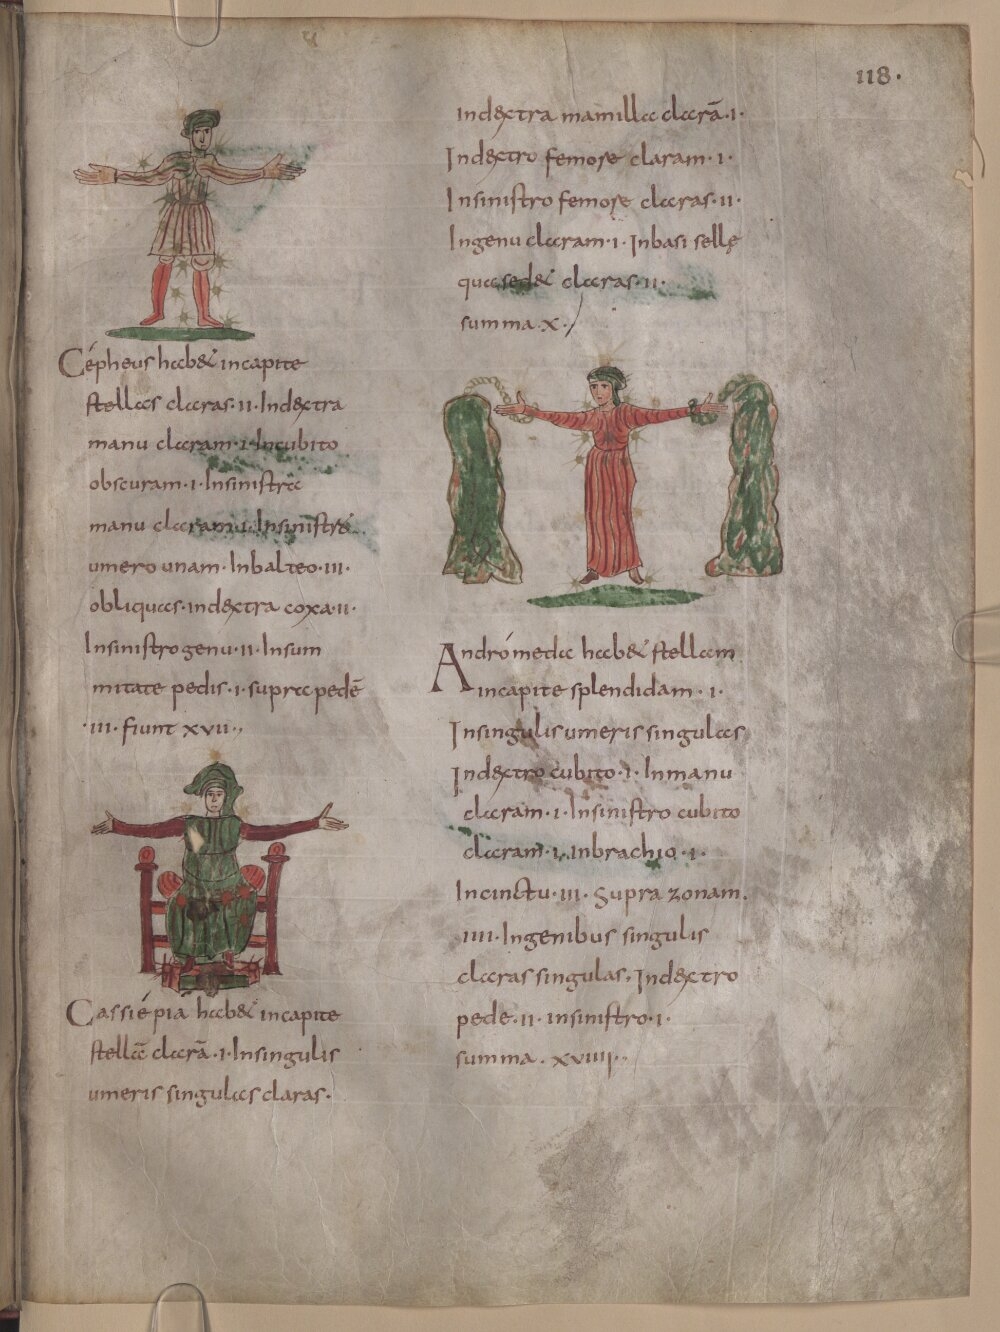 118.
Cépheus hab& incapite
stellas claras·II·Indextra
manu claram·I·Incubito
obscuram·I·Insinistra
manu claram·I·Insinistro
umero unam·Inbalteo·III·
obliquas·indextra coxa·II·
Insinistro genu·II·Insum
mitate pedis·I·supra pedē
·III·fiunt XVII·,
Cassiépia hab& incapite
stellā clarā·I·Insingulis
umeris singulas claras·
Indextra mamilla clarā·I·
Indextro femore claram·I·
Insinistro femore claras·II·
Ingenu claram·I·Inbasi sellę
qua sed& claras·II·
summa·X·/
Andrómeda hab& stellam
incapite splendidam·I·
Insingulis umeris singulas
Indextro cubito·I·Inmanu
claram·I·Insinistro cubito
claram·I·Inbrachio·I·
Incinctu·III·Supra zonam.
IIII·Ingenibus singulis
claras singulas·Indextro
pede·II·insinistro·I·
summa·XVIIII··